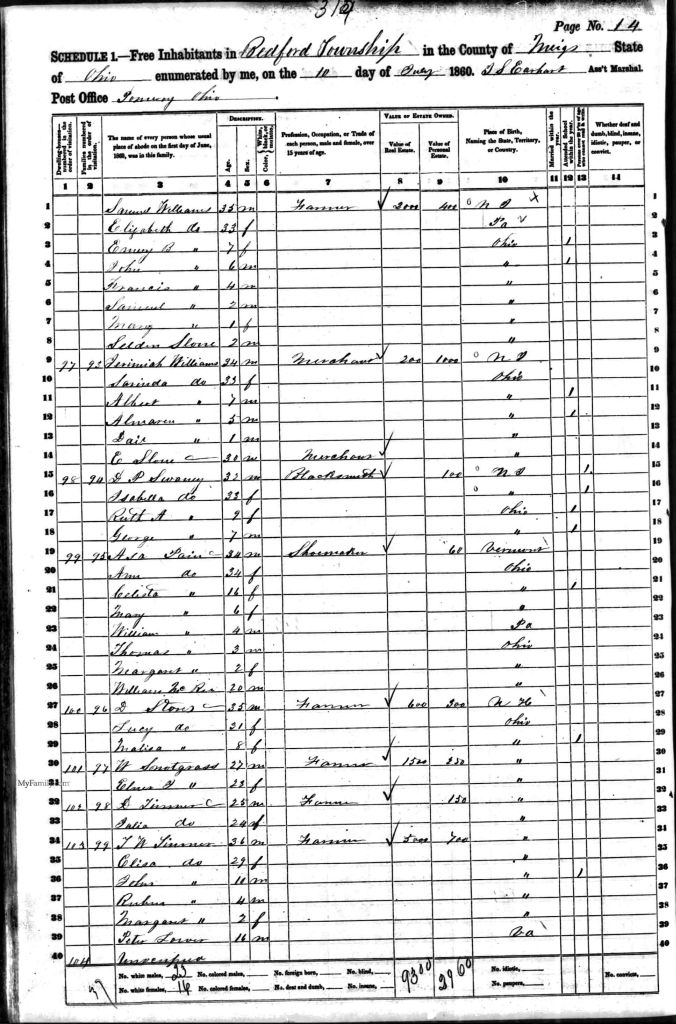 317
Page No. 14
SCHEDULE 1.—Free Inhabitants in Bedford Township in the County of Meigs State
of Ohio enumerated by me, on the 10 day of July 1860. T S Earhart Ass't Marshal.
Post Office Pomeroy Ohio
Dwelling-houses—numbered in the order of visitation.
Families numbered in the order of visitation.
The name of every person whose usual place of abode on the first day of June, 1860, was in this family.
DESCRIPTION.
Age.
Sex.
Color, White, black, or mulatto.
Profession, Occupation, or Trade of each person, male and female, over 15 years of age.
VALUE OF ESTATE OWNED.
Value of Real Estate.
Value of Personal Estate.
Place of Birth, Naming the State, Territory, or Country.
Married within the year.
Attended School within the year.
Persons over 20 y'rs of age who cannot read & write.
Whether deaf and dumb, blind, insane, idiotic, pauper, or convict.
1 2 3 4 5 6 7 8 9 10 11 12 13 14
1 Samuel Williams 35 m Farmer 2000 400 1
2 Elizabeth do 33 f Pa 2
3 Emery B " 7 f Ohio 1 3
4 John " 6 m " 1 4
5 Francis " 4 m " 5
6 Samuel " 2 m " 6
7 Mary " 1 f " 7
8 Selden Stone 2 m " 8
9 97 93 Jerimiah Williams 34 m Merchant 200 1000 9
10 Sarinda do 33 f Ohio 10
11 Albert " 7 m " 1 11
12 Almaren " 5 m " 1 12
13 " 1 m " 13
14 E Stone 30 m Merchant " 14
15 98 94 D P Swaney 32 m Blacksmith 100 1 15
16 Isabella do 33 f " 1 16
17 Ruth A " 9 f Ohio 1 17
18 George " 7 m " 1 18
19 99 95 Asa Pain 34 m Shoemaker 60 Vermont 19
20 Ann do 34 f Ohio 20
21 Celista " 16 f " 1 21
22 Mary " 6 f " 22
23 William " 4 m Pa 23
24 Thomas " 3 m Ohio 24
25 Margaret " 2 f " 25
26 William 20 m " 26
27 100 96 D Stone 35 m Farmer 600 300 N H 27
28 Lucy do 31 f Ohio 28
29 Malisa " 8 f " 1 29
30 101 97 W Snotgrass 27 m Farmer 1500 250 " 30
31 " 23 f " 31
32 102 98 D Tinner 25 m Farmer 150 " 32
33 Julia do 24 f " 33
34 103 99 T W Tinner 36 m Farmer 5000 700 " 34
35 Elisa do 29 f " 35
36 John " 10 m " 1 36
37 Ruben " 4 m " 37
38 Margaret " 2 f " 38
39 Peter Lower 16 m Va 39
40 104 Unoccupied 40
No. white males, 23 No. colored males, No. foreign born, No. blind, 9300 2960 No. idiotic, No. convicts,
No. white females, 16 No. colored females, No. deaf and dumb, No. insane, No. paupers,
39
MyFamily.com